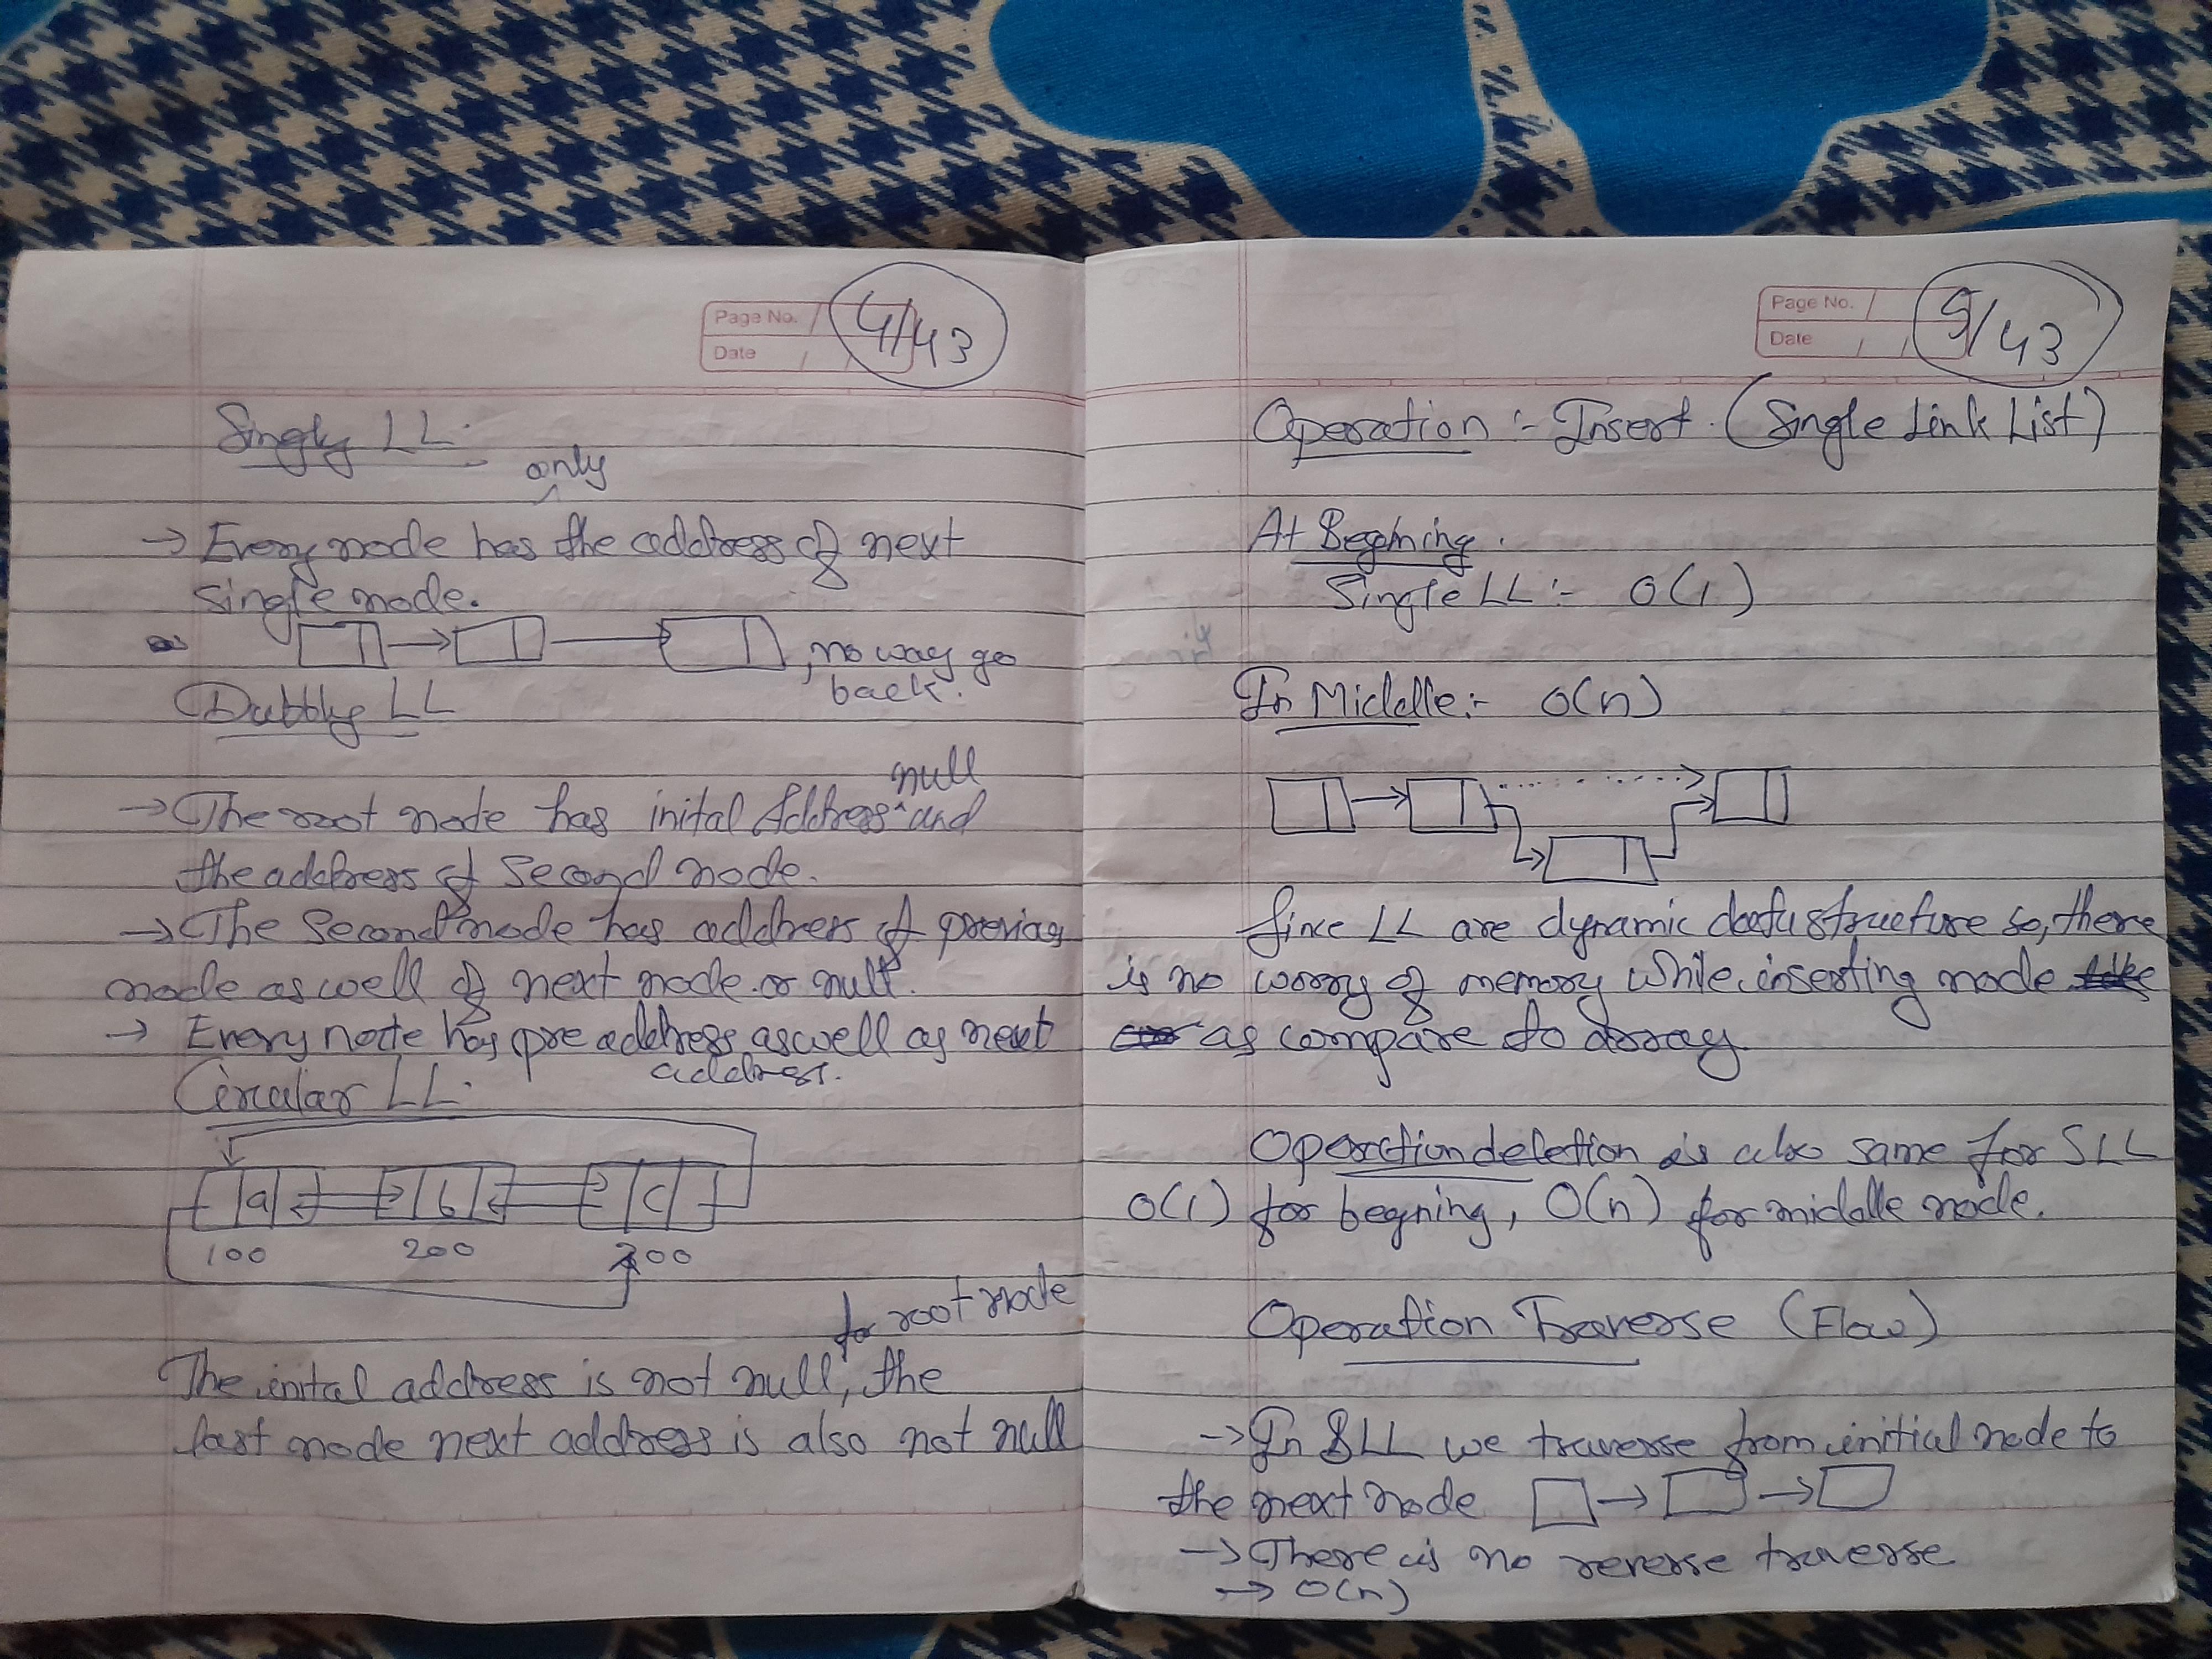 Page No.
Date
4/43
Singly LL.
only
→ Every node has the address of next
single node.
, no way go
back.
Dubbly LL
null
→ The root node has inital Address^ and
the address of second node.
→ The second node has address of previous
node as well of next node or null.
→ Every note has pre address aswell as next
address.
Circular LL.
a b c
100 200 300
for root node
The inital address is not null, the
last node next address is also not null
Page No.
Date
5/43
Operation :- Insert. (Single Link List)
At Begining.
Single LL :- O(1)
In Middle :- O(n)
Since LL are dynamic data structure so, there
is no worry of memory while inserting node
as compare to array.
Operation deletion is also same for SLL
O(1) for begning, O(n) for middle node.
Operation Traverse (Flow)
→ In SLL we traverse from initial node to
the next node
→ There is no reverse traverse
→ O(n)